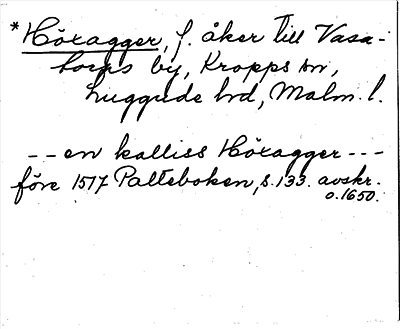 *Höxagger, f. åker till Vasa-
torps by, Kropps sn,
Luggude hd, Malm. l.
-- en kalliss Höxagger ---
före 1517 Palteboken, s. 133. avskr.
o. 1650.